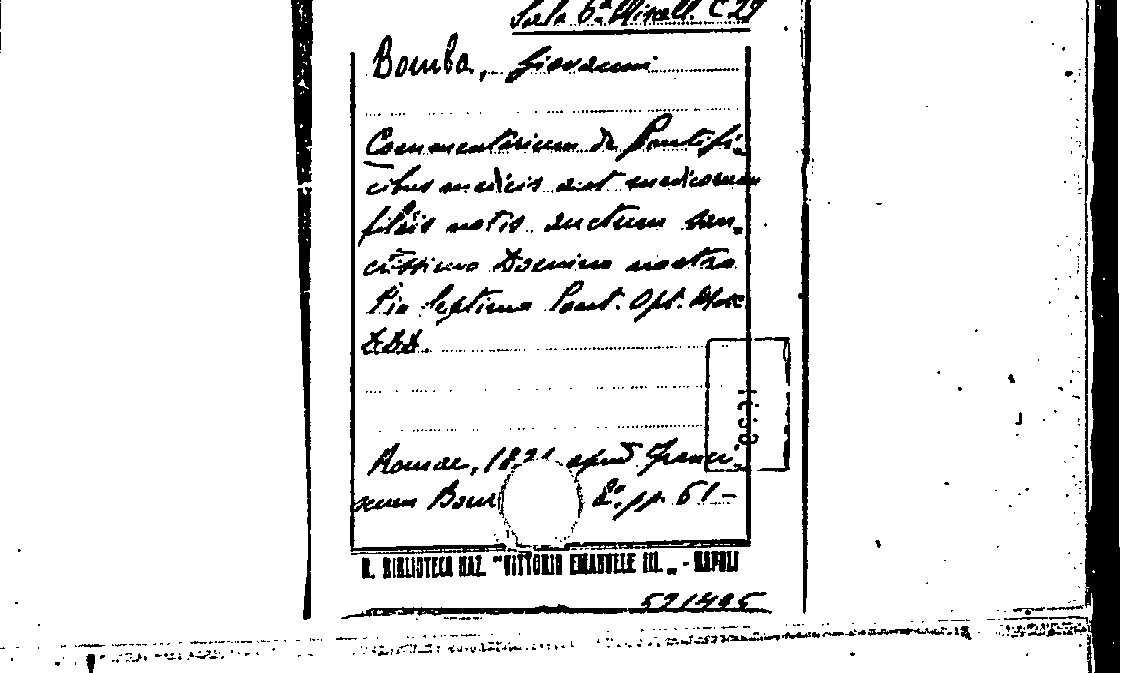 Sala 6ª Miscell. C 29
Bomba, Giovanni
Commentarium de Pontifi-
cibus medicis aut medicorum
filiis notis auctum san-
ctissimo Domino nostro
Pio Septimo Pont. Opt. Max
DDD.
Romae, 1821 apud Franci-
scum Bour 8°. pp. 61-
R. BIBLIOTECA NAZ. "VITTORIO EMANUELE III." - NAPOLI
571495